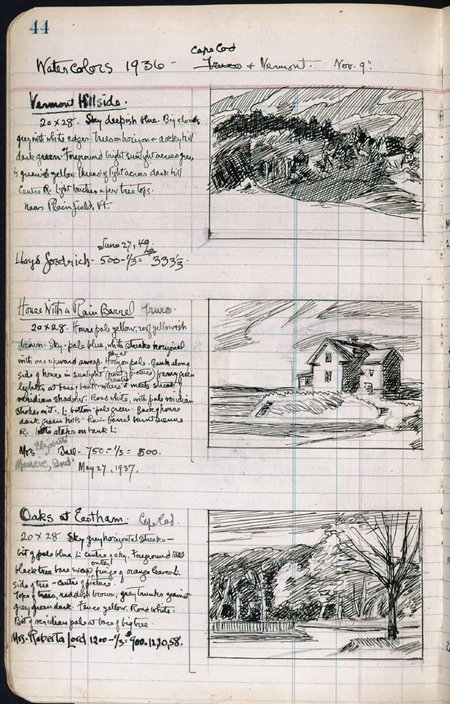 44
Cape Cod
Water Colors 1936 - Truro + Vermont. Nov. 9"
Vermont Hillside.
20 x 28. Sky deepish blue. Big clouds
grey with white edges. Trees on horizon +
dark green. Foreground bright sunlight across grass
greenish yellow. Thread of light across dark hill
Centre R. light touches a few tree tops.
near Plainfield, Vt.
June 27, 49.
Lloyd Goodrich - 500 - 1/3 = 333 1/3
House With a Rain Barrel Truro
20 x 28. House pale yellow, roof yellowish
brown. Sky - pale blue, white streaks horizontal
with one upward sweep. Horizon pale. Bank along
side of house in sunlight
lighter at base, burnt where it meets street
viridian shadow. Road white, with pale viridian
L. bottom pale green. Back of house
dark green hills. Rain barrel burnt sienna
R. steps on bank L.
Mrs. Ball - 750 - 1/3 = 500.
Muncie, Ind.
May 27, 1937.
Oaks at Eastham. Cape Cod.
20 x 28 Sky grey horizontal streaks -
bit of pale blue L. centre of sky. Foreground tall
black tree bare except fringe of orange leaves L.
side of tree - centre of picture.
Tops of trees, reddish brown, grey trunks against
grey green dark. Fence yellow. Road white.
Bit of viridian pale at base of big tree.
Mrs. Roberta Lord 1200 - 1/3 = 900.